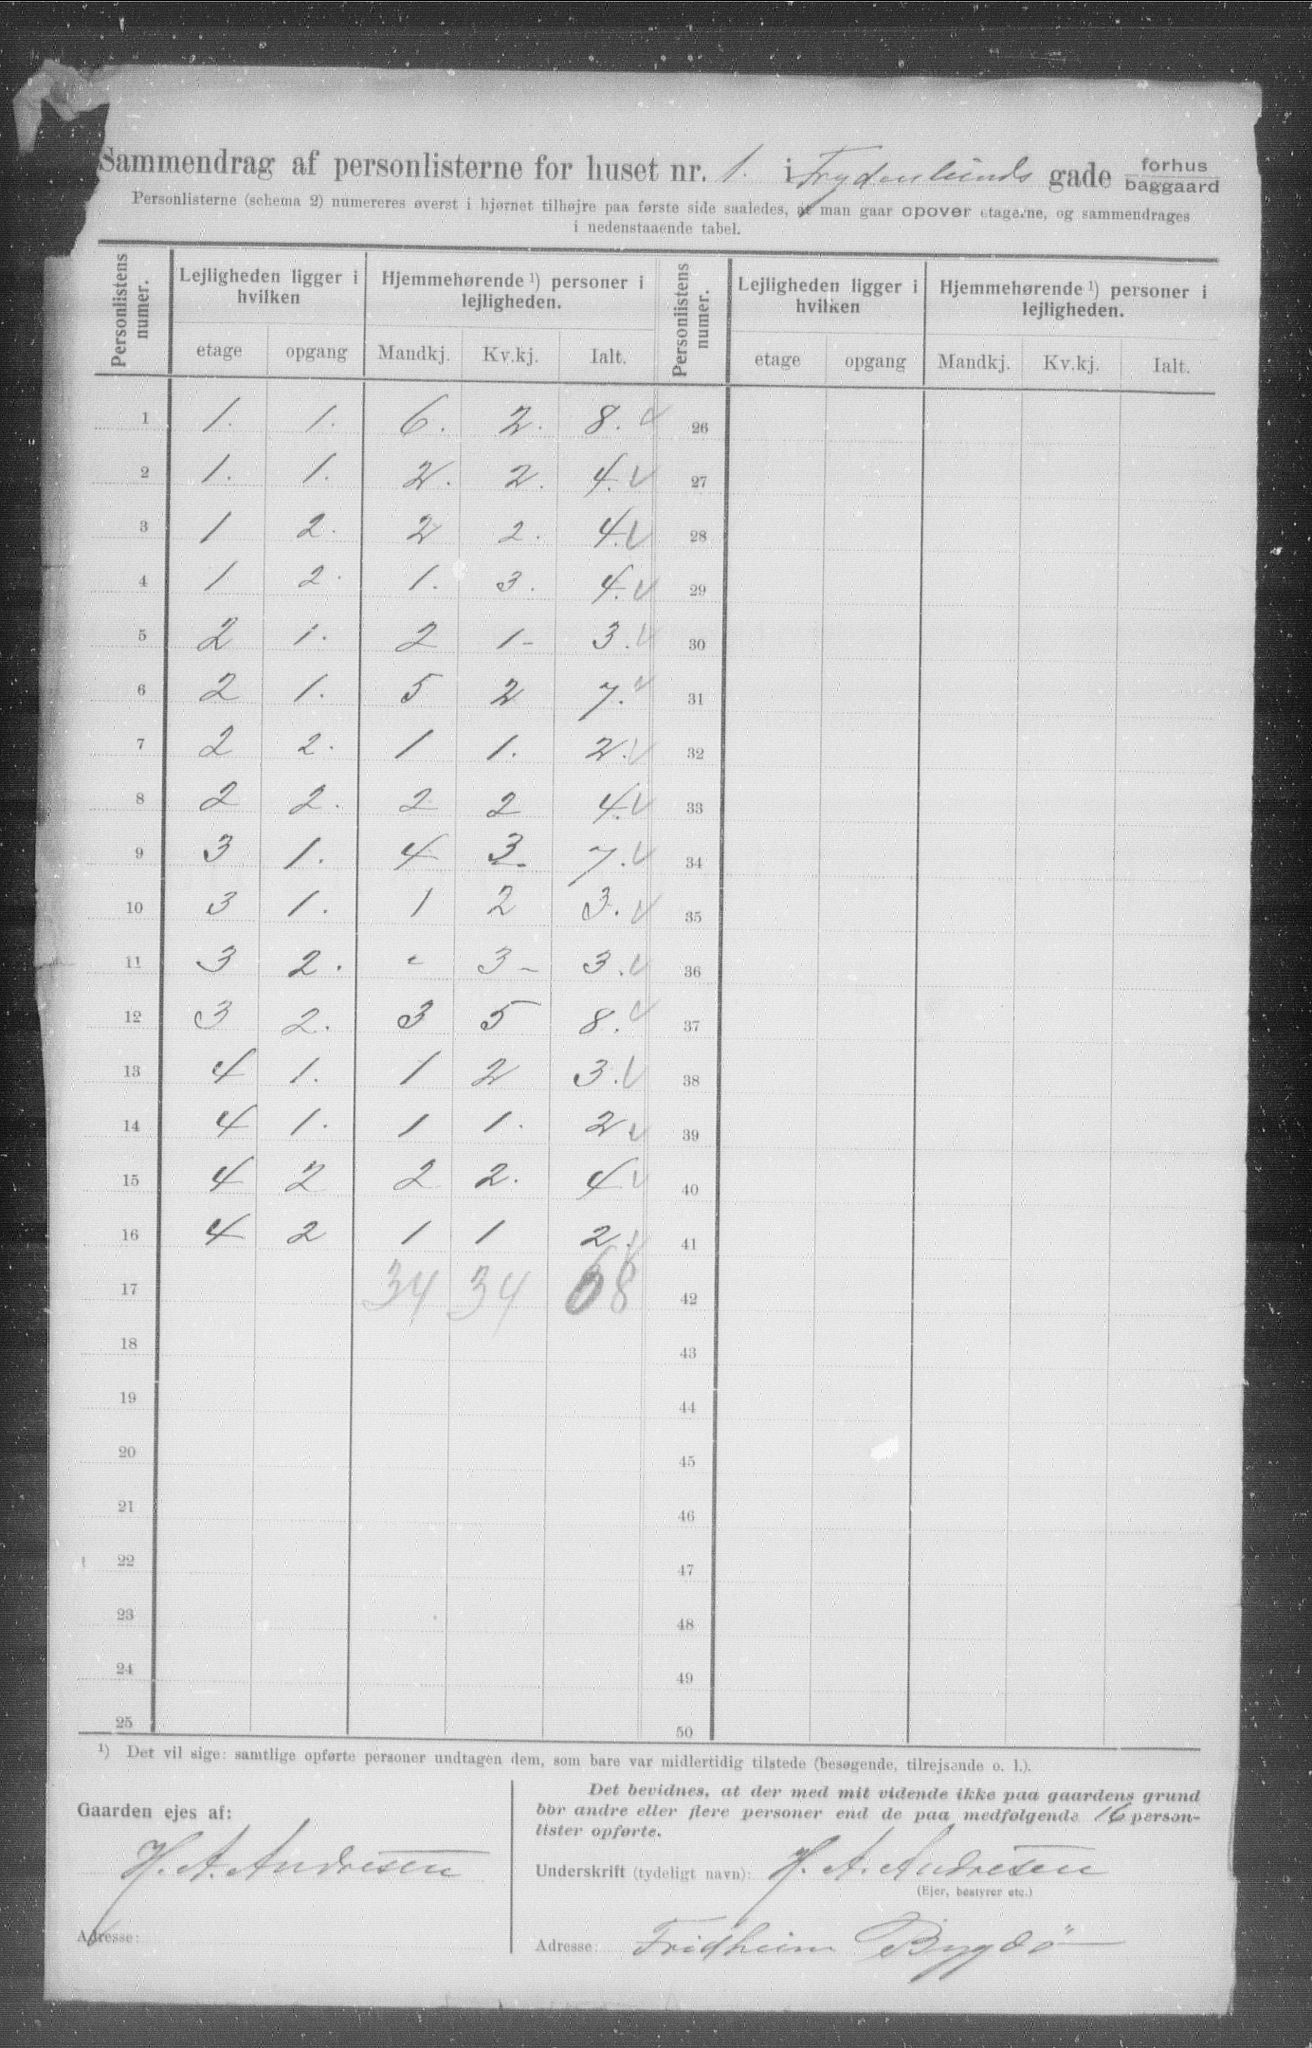 Sammendrag af personlisterne for huset nr. 1. i Frydenlunds gade forhus
baggaard
Personlisterne (schema 2) numereres øverst i hjørnet tilhøjre paa første side saaledes, at man gaar opover etagerne, og sammendrages
i nedenstaaende tabel.
Personlistens numer. Lejligheden ligger i hvilken Hjemmehørende ¹) personer i lejligheden. Personlistens numer. Lejligheden ligger i hvilken Hjemmehørende ¹) personer i lejligheden.
etage opgang Mandkj. Kv.kj. Ialt. etage opgang Mandkj. Kv.kj. Ialt.
1 1. 1. 6. 2. 8. 26
2 1. 1. 2. 2. 4. 27
3 1 2. 2 2. 4. 28
4 1 2. 1. 3. 4. 29
5 2 1. 2 1- 3. 30
6 2 1. 5 2 7. 31
7 2 2. 1 1. 2. 32
8 2 2. 2 2 4. 33
9 3 1. 4 3- 7. 34
10 3 1. 1 2 3. 35
11 3 2. - 3- 3. 36
12 3 2. 3 5 8. 37
13 4 1. 1 2 3. 38
14 4 1. 1 1. 2 39
15 4 2 2 2. 4 40
16 4 2 1 1 2. 41
17 34 34 68 42
18 43
19 44
20 45
21 46
22 47
23 48
24 49
25 50
¹) Det vil sige: samtlige opførte personer undtagen dem, som bare var midlertidig tilstede (besøgende, tilrejsende o. l.).
Gaarden ejes af:
H. A. Andresen
Adresse:
Det bevidnes, at der med mit vidende ikke paa gaardens grund
bor andre eller flere personer end de paa medfølgende 16 person-
lister opførte.
Underskrift (tydeligt navn): H. A. Andresen
(Ejer, bestyrer etc.)
Adresse: Fridheim Bygdö